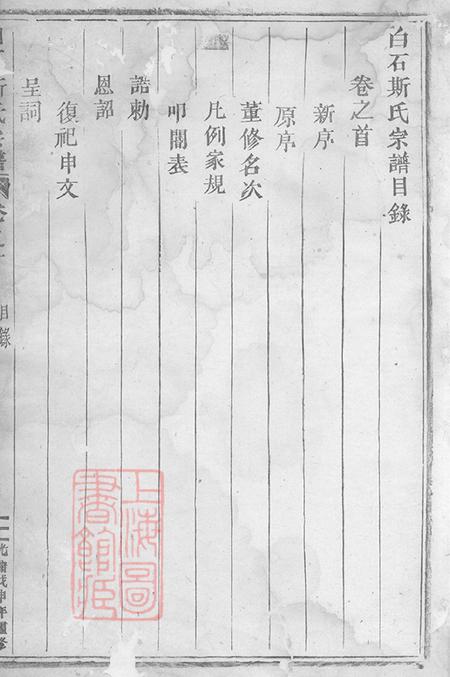 白石斯氏宗譜目錄
卷之首
新序
原序
董修名次
凡例家規
叩閽表
誥勅
恩詔
復祀申文
呈詞
斯氏宗譜
目錄
光緒戊申年重修
上海圖
書館藏